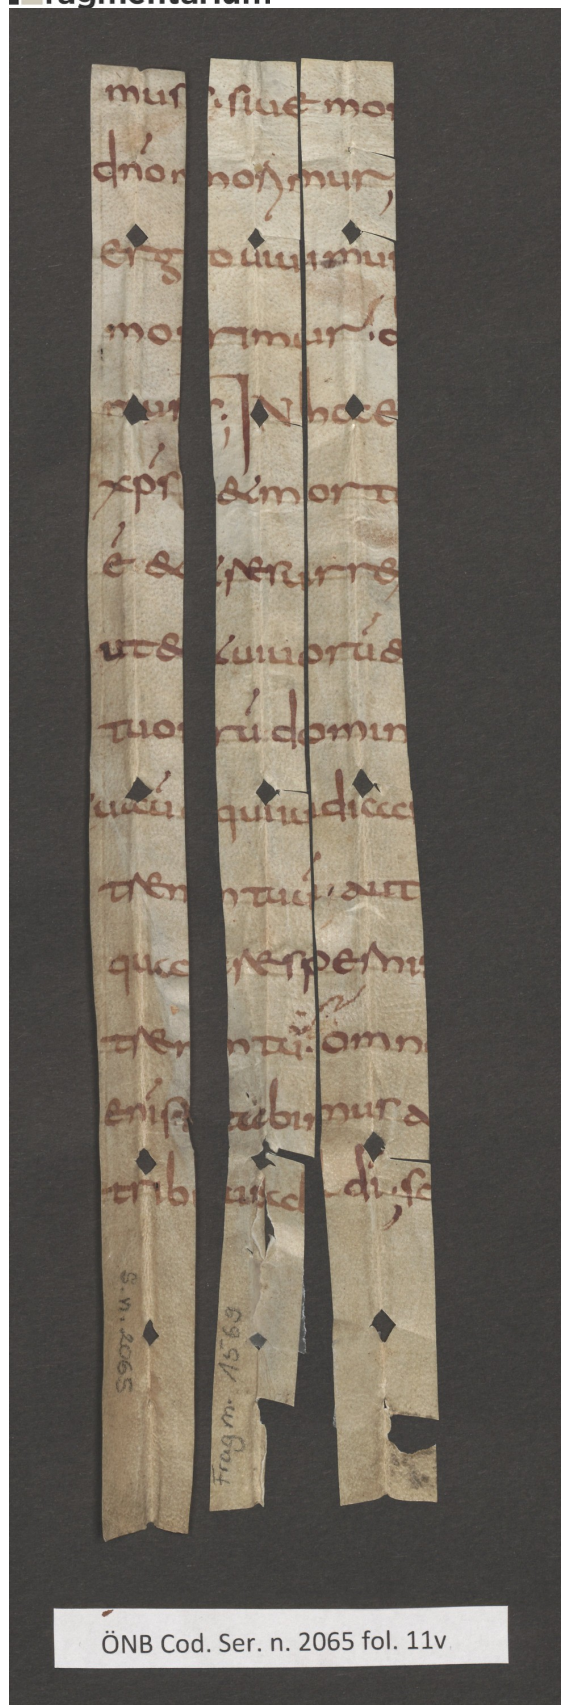 mus; siue mor
dn̄o morimur;
ergo uiuimus
morimur d
mur; IN hoc e
xp̄s & mortu
ē & resurre
ut & uiuorū &
tuorū domin
tu autē qui iudica
trem tuū aut
quare spernis
trem tuū. omn
enī stabimus a
tribunal di; sc
S.n. 2065
Fragm. 1569
ÖNB Cod. Ser. n. 2065 fol. 11v